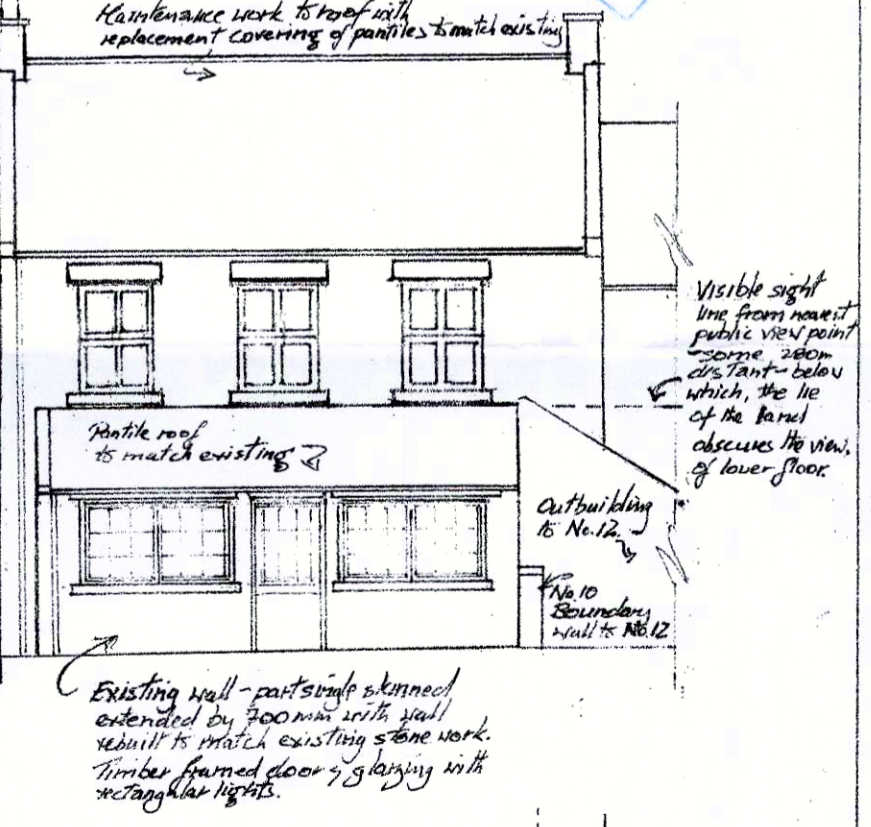 Maintenance work to roof with
replacement covering of pantiles to match existing
Visible sight
line from nearest
public view point
-some 200m
distant-below
which, the lie
of the land
obscures the view.
of lower floor.
Pantile roof
to match existing
Outbuilding
to No.12.
No.10
Boundary
wall to No.12
Existing wall - part single skinned
extended by 700mm with wall
rebuilt to match existing stone work.
Timber framed door & glazing with
rectangular lights.